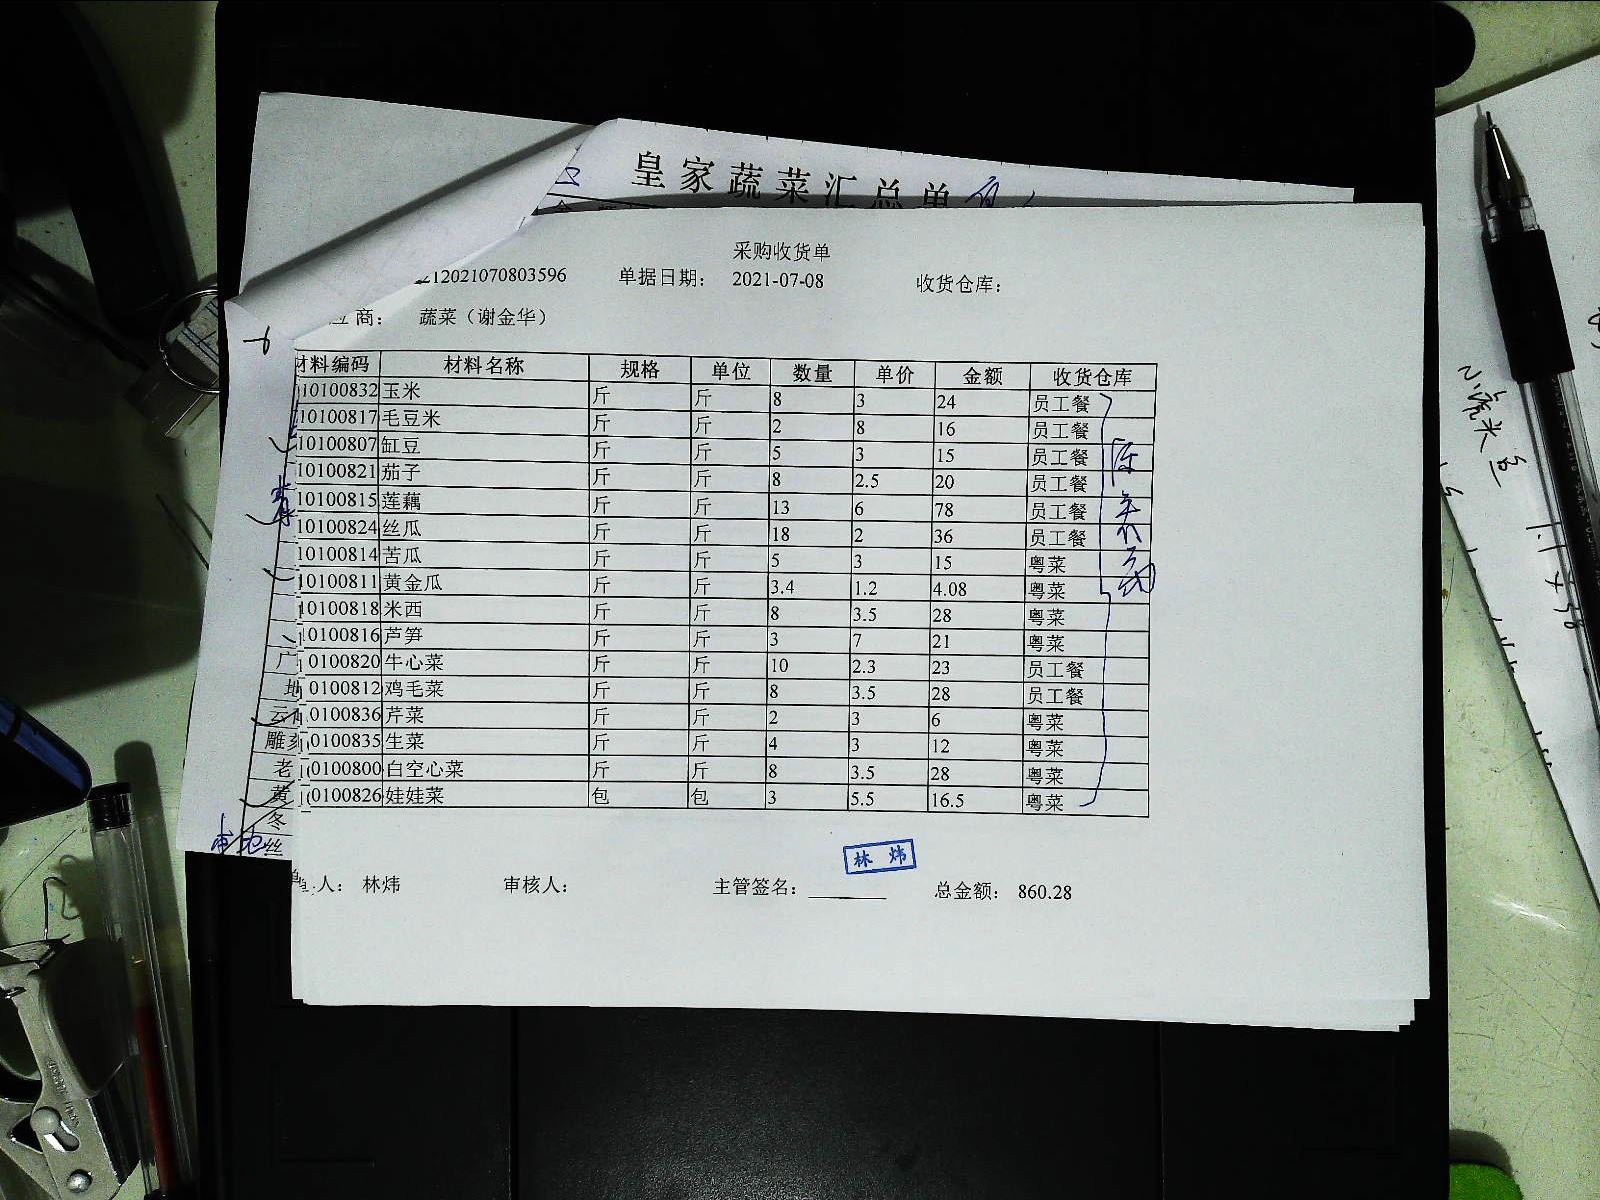 皇家蔬菜汇总单
采购收货单
212021070803596 单据日期： 2021-07-08 收货仓库：
应商： 蔬菜（谢金华）
材料编码 材料名称 规格 单位 数量 单价 金额 收货仓库
10100832 玉米 斤 斤 8 3 24 员工餐
10100817 毛豆米 斤 斤 2 8 16 员工餐
10100807 缸豆 斤 斤 5 3 15 员工餐
10100821 茄子 斤 斤 8 2.5 20 员工餐
10100815 莲藕 斤 斤 13 6 78 员工餐
10100824 丝瓜 斤 斤 18 2 36 员工餐
10100814 苦瓜 斤 斤 5 3 15 粤菜
10100811 黄金瓜 斤 斤 3.4 1.2 4.08 粤菜
10100818 米西 斤 斤 8 3.5 28 粤菜
10100816 芦笋 斤 斤 3 7 21 粤菜
0100820 牛心菜 斤 斤 10 2.3 23 员工餐
0100812 鸡毛菜 斤 斤 8 3.5 28 员工餐
0100836 芹菜 斤 斤 2 3 6 粤菜
0100835 生菜 斤 斤 4 3 12 粤菜
0100800 白空心菜 斤 斤 8 3.5 28 粤菜
0100826 娃娃菜 包 包 3 5.5 16.5 粤菜
广
云
雕
老
黄
冬
丝
林炜
单人： 林炜 审核人： 主管签名： 总金额： 860.28